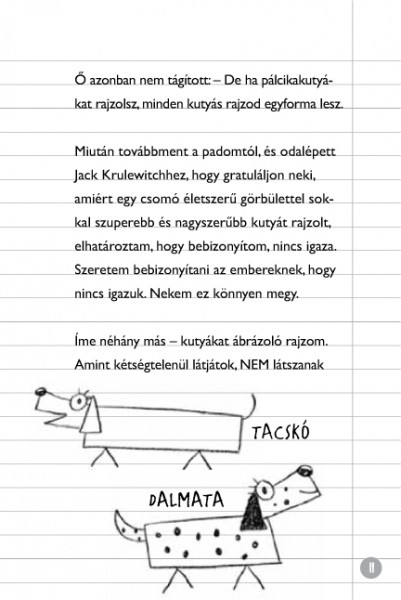 Ő azonban nem tágított: – De ha pálcikakutyá-
kat rajzolsz, minden kutyás rajzod egyforma lesz.
Miután továbbment a padomtól, és odalépett
Jack Krulewitchhez, hogy gratuláljon neki,
amiért egy csomó életszerű görbülettel sok-
kal szuperebb és nagyszerűbb kutyát rajzolt,
elhatároztam, hogy bebizonyítom, nincs igaza.
Szeretem bebizonyítani az embereknek, hogy
nincs igazuk. Nekem ez könnyen megy.
Íme néhány más – kutyákat ábrázoló rajzom.
Amint kétségtelenül látjátok, NEM látszanak
TACSKÓ
DALMATA
11